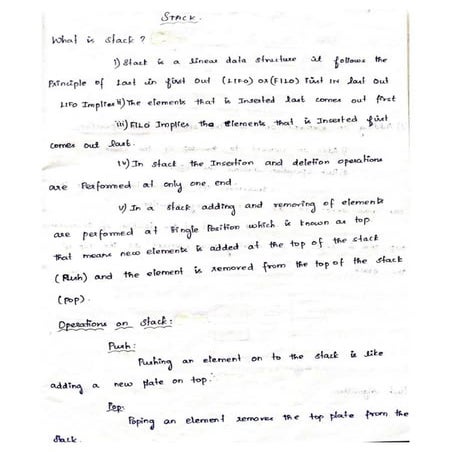 STACK.
What is stack ?
i) Stack is a linear data structure it follows the
Principle of Last in first Out (LIFO) OR (FILO) First IN last Out
LIFO Implies ii) The elements that is Inserted last comes out first
iii) FILO Implies the elements that is Inserted first
comes out last.
iv) In stack the Insertion and deletion operations
are Performed at only one end.
v) In a stack adding and removing of elements
are performed at Single Position which is known as top
that means new elements is added at the top of the stack
(Push) and the element is removed from the top of the stack
(Pop).
Operations on stack:
Push:
Pushing an element on to the stack is like
adding a new plate on top.
Pop:
Poping an element removes the top plate from the
stack.